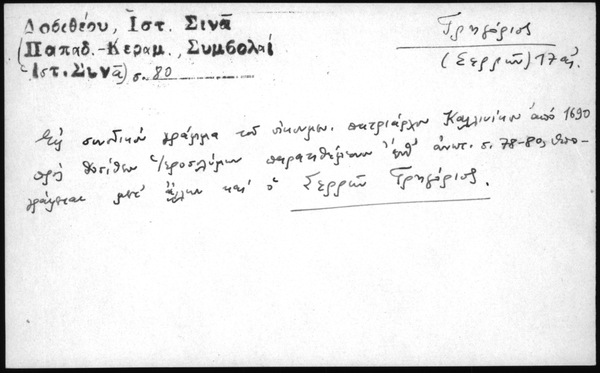 Δοσιθέου, Ἱστ. Σινᾶ
(Παπαδ.-Κεραμ., Συμβολαί
Ἱστ. Σινᾶ) σ. 80
Γρηγόριος
(Σερρῶν) 17 αἰ.
Εἰς συνοδικὸν γράμμα τοῦ οἰκουμ. πατριάρχου Καλλινίκου ἀπὸ 1690
πρὸς Δοσίθεον Ἱεροσολύμων παρατιθέμενον ὑπ' ἀνωτ. σ. 78-80, ὑπο-
γράφεται μετ' ἄλλων καὶ ὁ Σερρῶν Γρηγόριος.